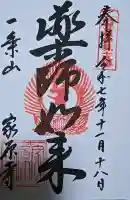 奉拝
令和七年十一月十八日
薬師如来
一乗山
家原寺